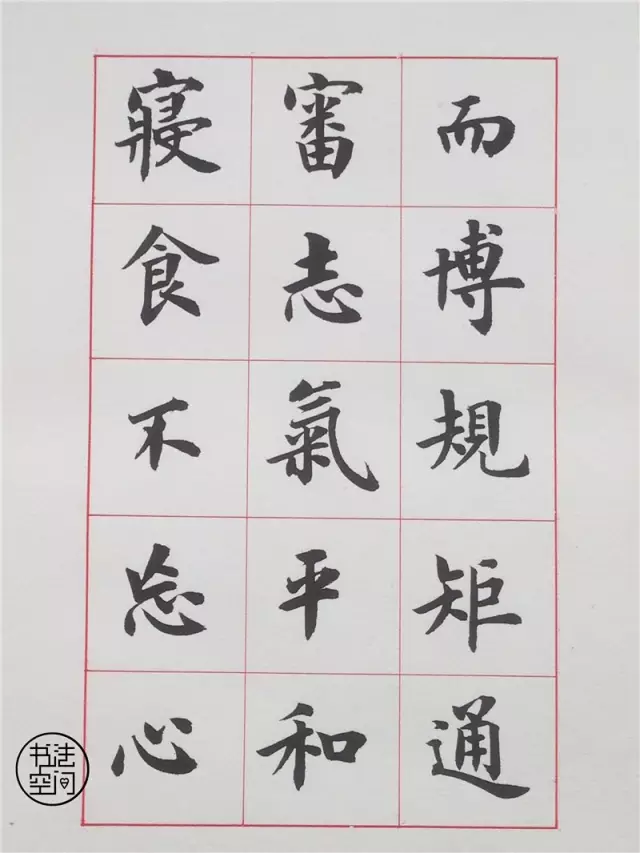 而博規矩通
審志氣平和
寢食不忘心
书法空间